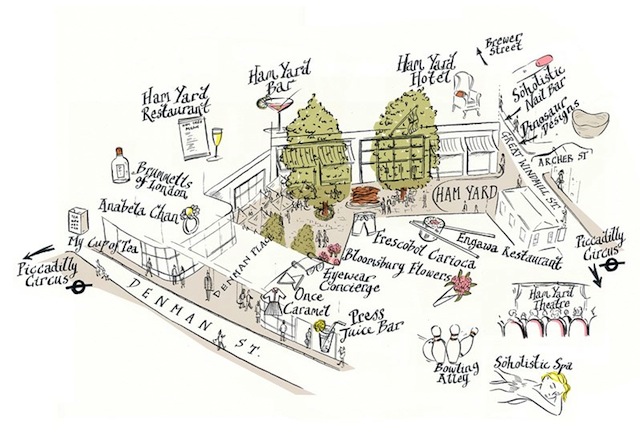 Brewer
Street
Ham Yard
Bar
Ham Yard
Hotel
Soholistic
Nail Bar
Ham Yard
Restaurant
Dinosaur
Designs
GREAT WINDMILL ST.
ARCHER ST
Brunnetts
of London
HAM YARD
Anabela Chan
My Cup of Tea
DENMAN PLACE
Frescobol Carioca
Engawa Restaurant
Piccadilly
Circus
Bloomsbury Flowers
Piccadilly
Circus
Eyewear
Concierge
DENMAN ST.
Once
Caramel
Ham Yard
Theatre
Press
Juice Bar
Bowling
Alley
Soholistic Spa